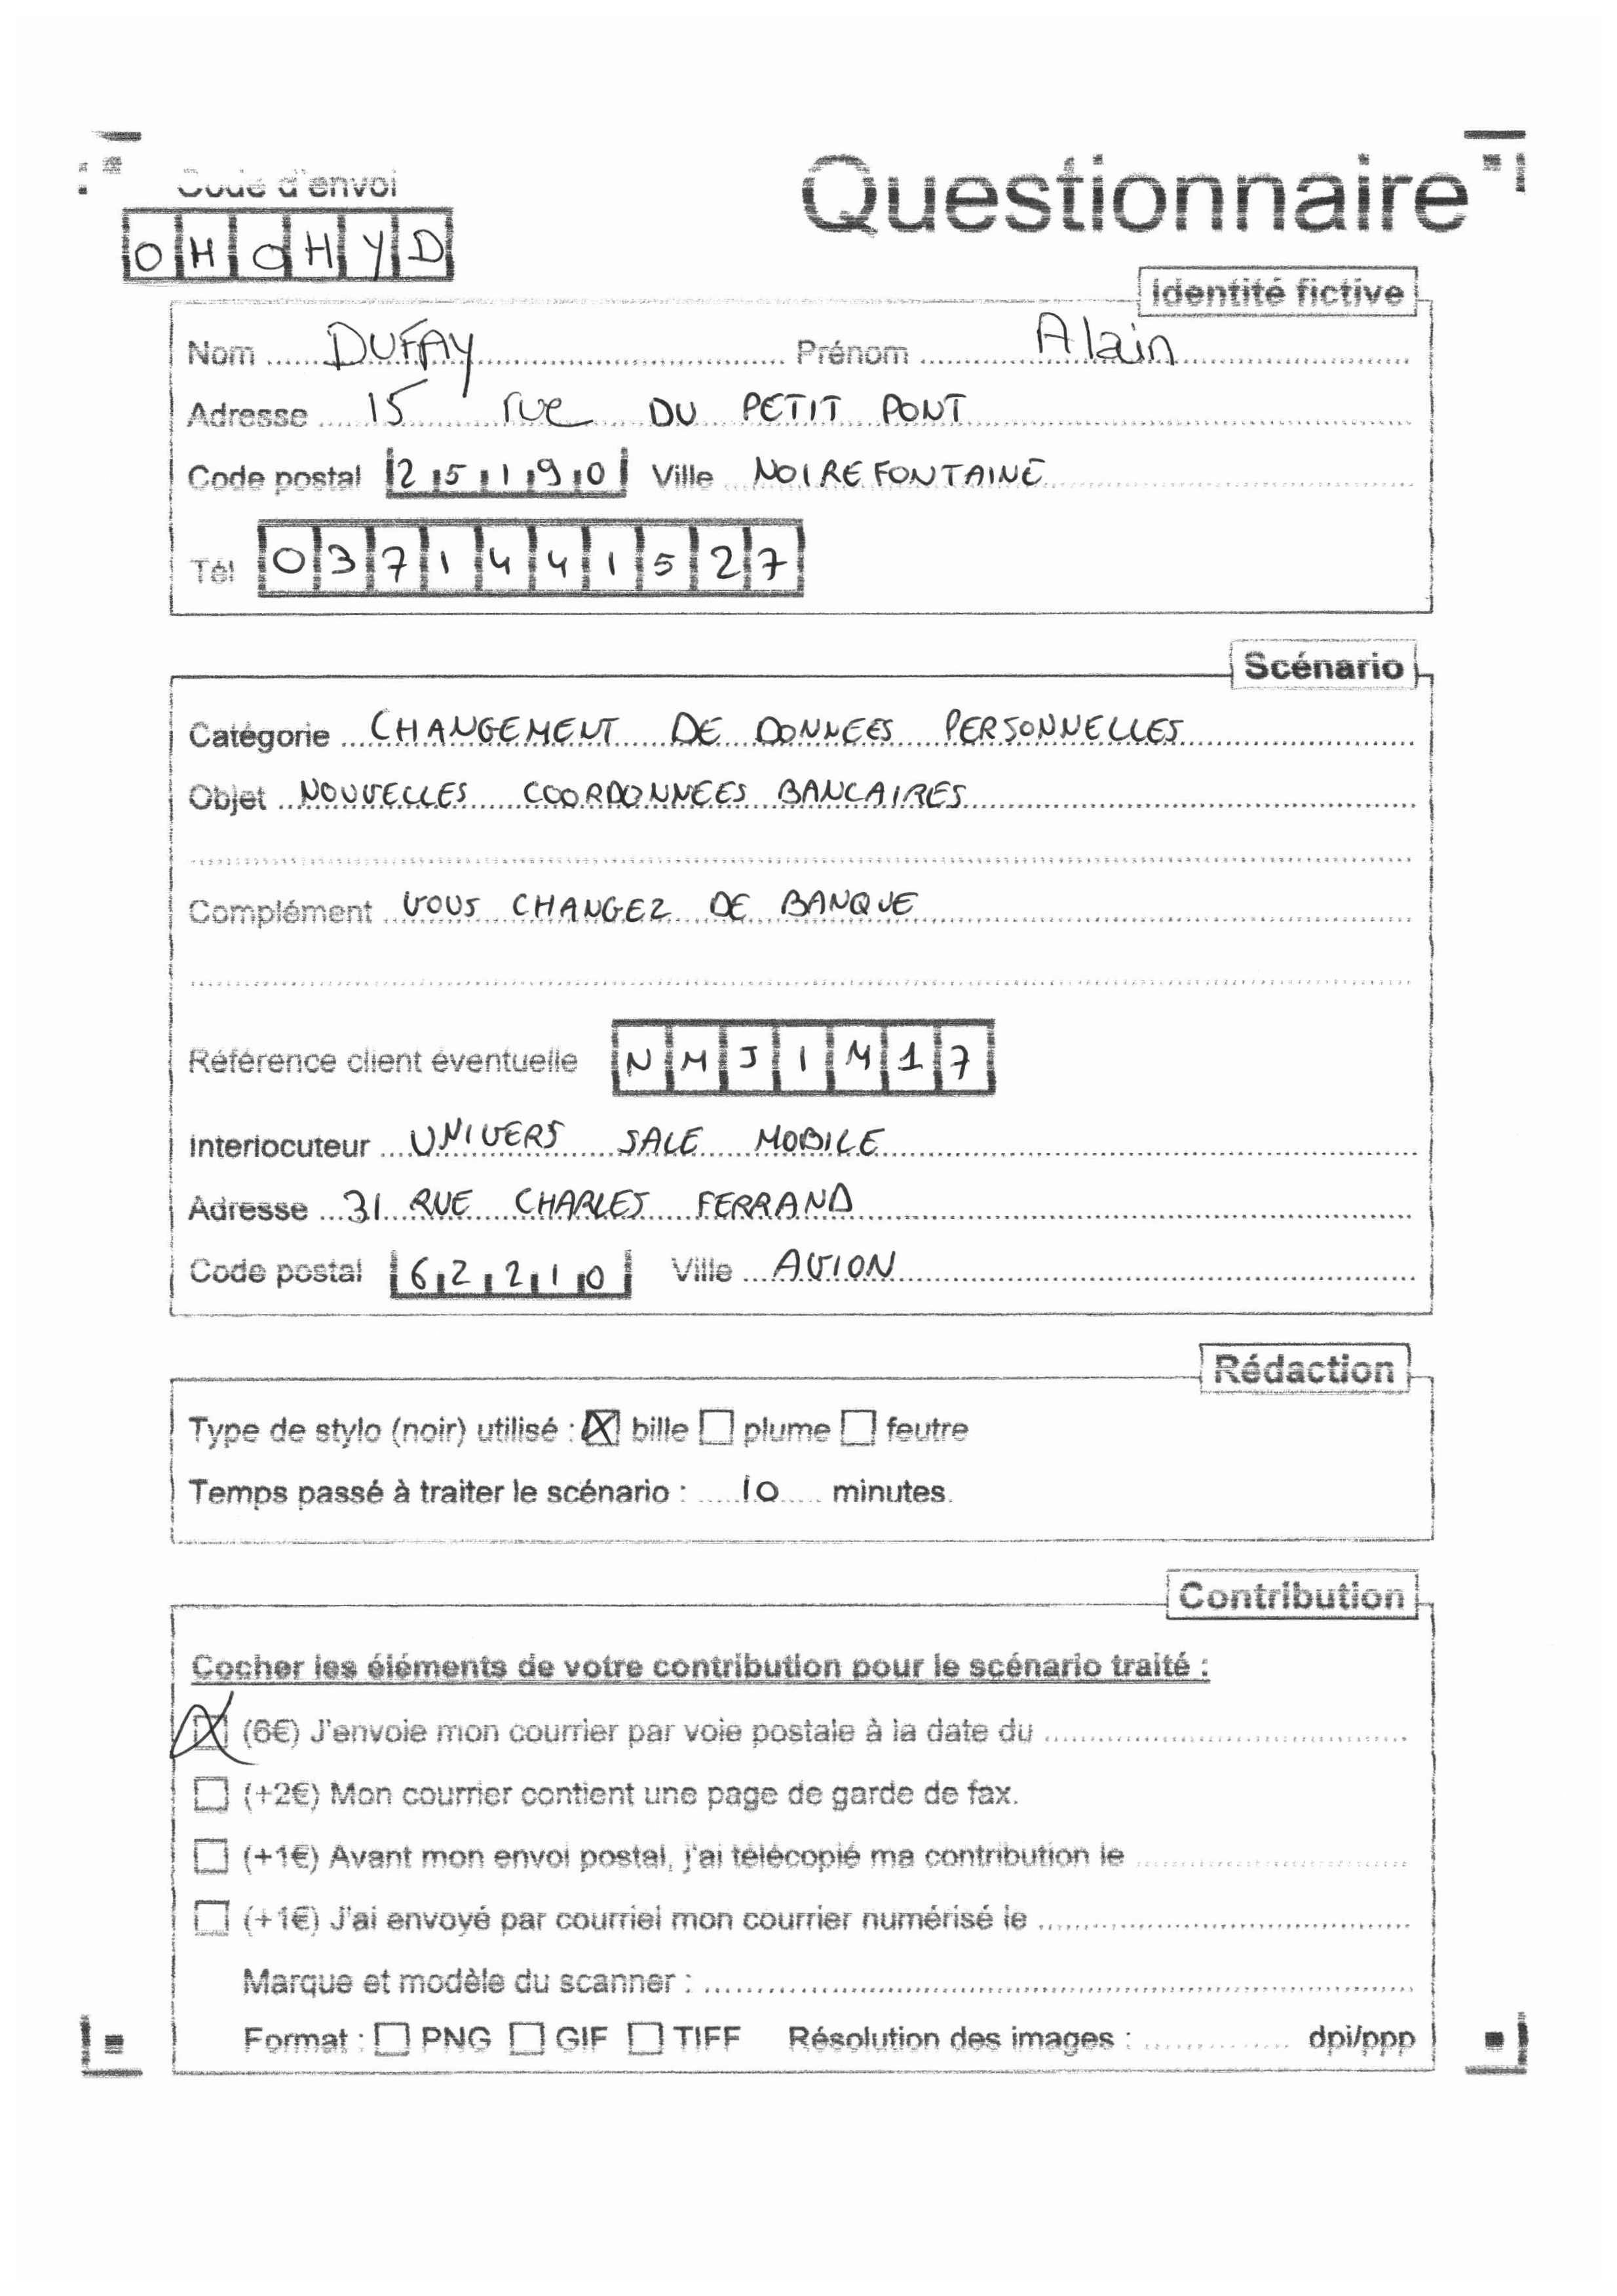 Code d'envoi
Questionnaire
OHOHYD
Identité fictive
Nom DUFAY Prénom Alain
Adresse 15 rue DU PETIT PONT
Code postal 25190 Ville NOIREFONTAINE
Tél 0371441527
Scénario
Catégorie CHANGEMENT DE DONNEES PERSONNELLES
Objet NOUVELLES COORDONNEES BANCAIRES
Complément VOUS CHANGEZ DE BANQUE
Référence client éventuelle NMJIM17
Interlocuteur UNIVERS SALE MOBILE
Adresse 31 RUE CHARLES FERRAND
Code postal 62210 Ville AVION
Rédaction
Type de stylo (noir) utilisé : bille plume feutre
Temps passé à traiter le scénario : 10 minutes.
Contribution
Cocher les éléments de votre contribution pour le scénario traité :
(6€) J'envoie mon courrier par voie postale à la date du
(+2€) Mon courrier contient une page de garde de fax.
(+1€) Avant mon envoi postal, j'ai télécopié ma contribution le
(+1€) J'ai envoyé par courriel mon courrier numérisé le
Marque et modèle du scanner :
Format : PNG GIF TIFF Résolution des images : dpi/ppp